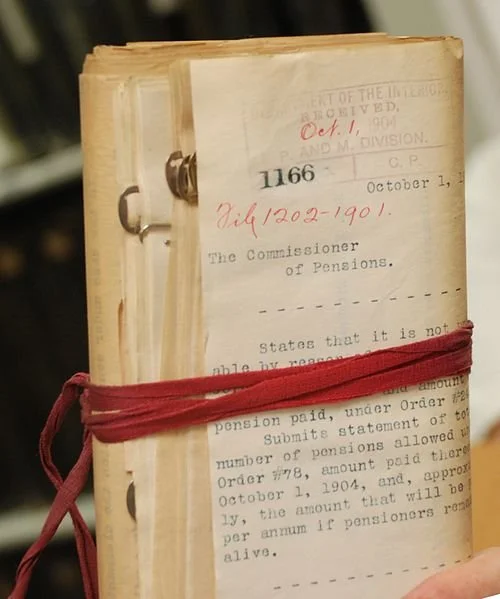 DEPARTMENT OF THE INTERIOR
RECEIVED,
Oct. 1, 1904
P. AND M. DIVISION.
G. P.
1166
October 1, 1
File 1202-1901.
The Commissioner
of Pensions.
States that it is not
able by reason of
and amount
pension paid, under Order #
Submits statement of
number of pensions allowed
Order #78, amount paid
October 1, 1904, and,
ly, the amount that will be
per annum if pensioners
alive.